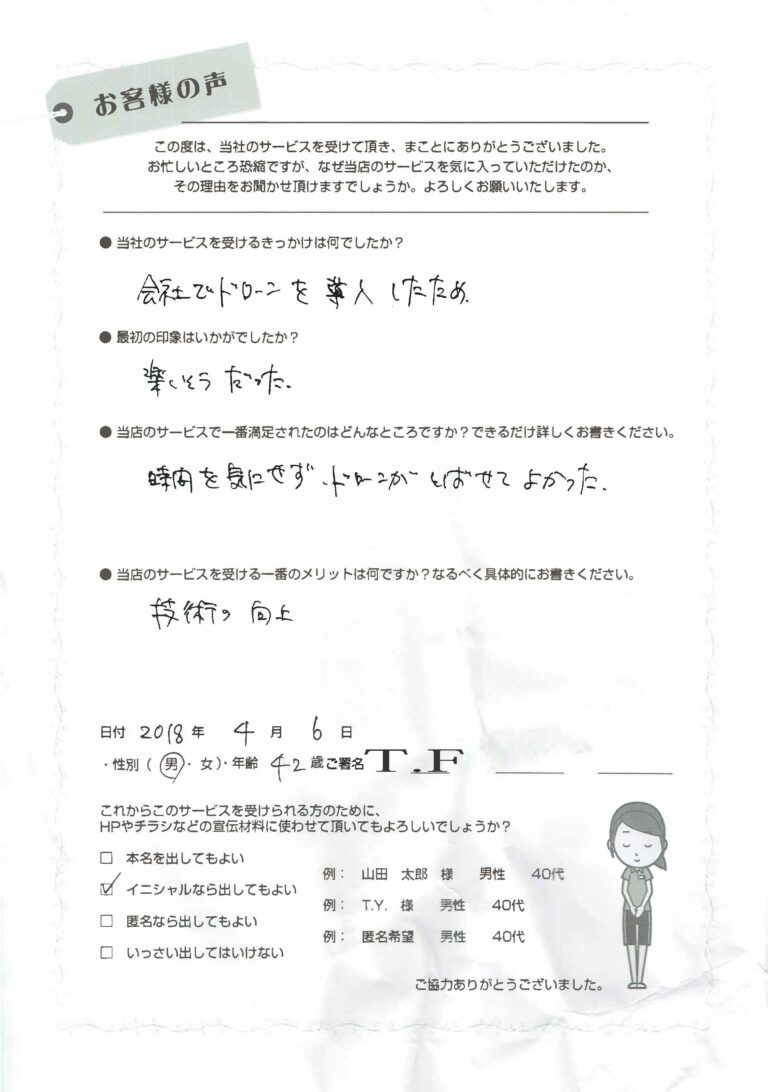 お客様の声
この度は、当社のサービスを受けて頂き、まことにありがとうございました。
お忙しいところ恐縮ですが、なぜ当店のサービスを気に入っていただけたのか、
その理由をお聞かせ頂けますでしょうか。よろしくお願いいたします。
● 当社のサービスを受けるきっかけは何でしたか？
会社でドローンを導入したため
● 最初の印象はいかがでしたか？
楽しそうだった。
● 当店のサービスで一番満足されたのはどんなところですか？できるだけ詳しくお書きください。
時間を気にせず、ドローンがとばせてよかった。
● 当店のサービスを受ける一番のメリットは何ですか？なるべく具体的にお書きください。
技術の向上
日付 2018 年 4 月 6 日
・性別（ 男 ・ 女）・年齢 42 歳 ご署名 T.F
これからこのサービスを受けられる方のために、
HPやチラシなどの宣伝材料に使わせて頂いてもよろしいでしょうか？
□ 本名を出してもよい 例： 山田 太郎 様 男性 40代
☑ イニシャルなら出してもよい 例： T.Y. 様 男性 40代
□ 匿名なら出してもよい 例： 匿名希望 男性 40代
□ いっさい出してはいけない
ご協力ありがとうございました。